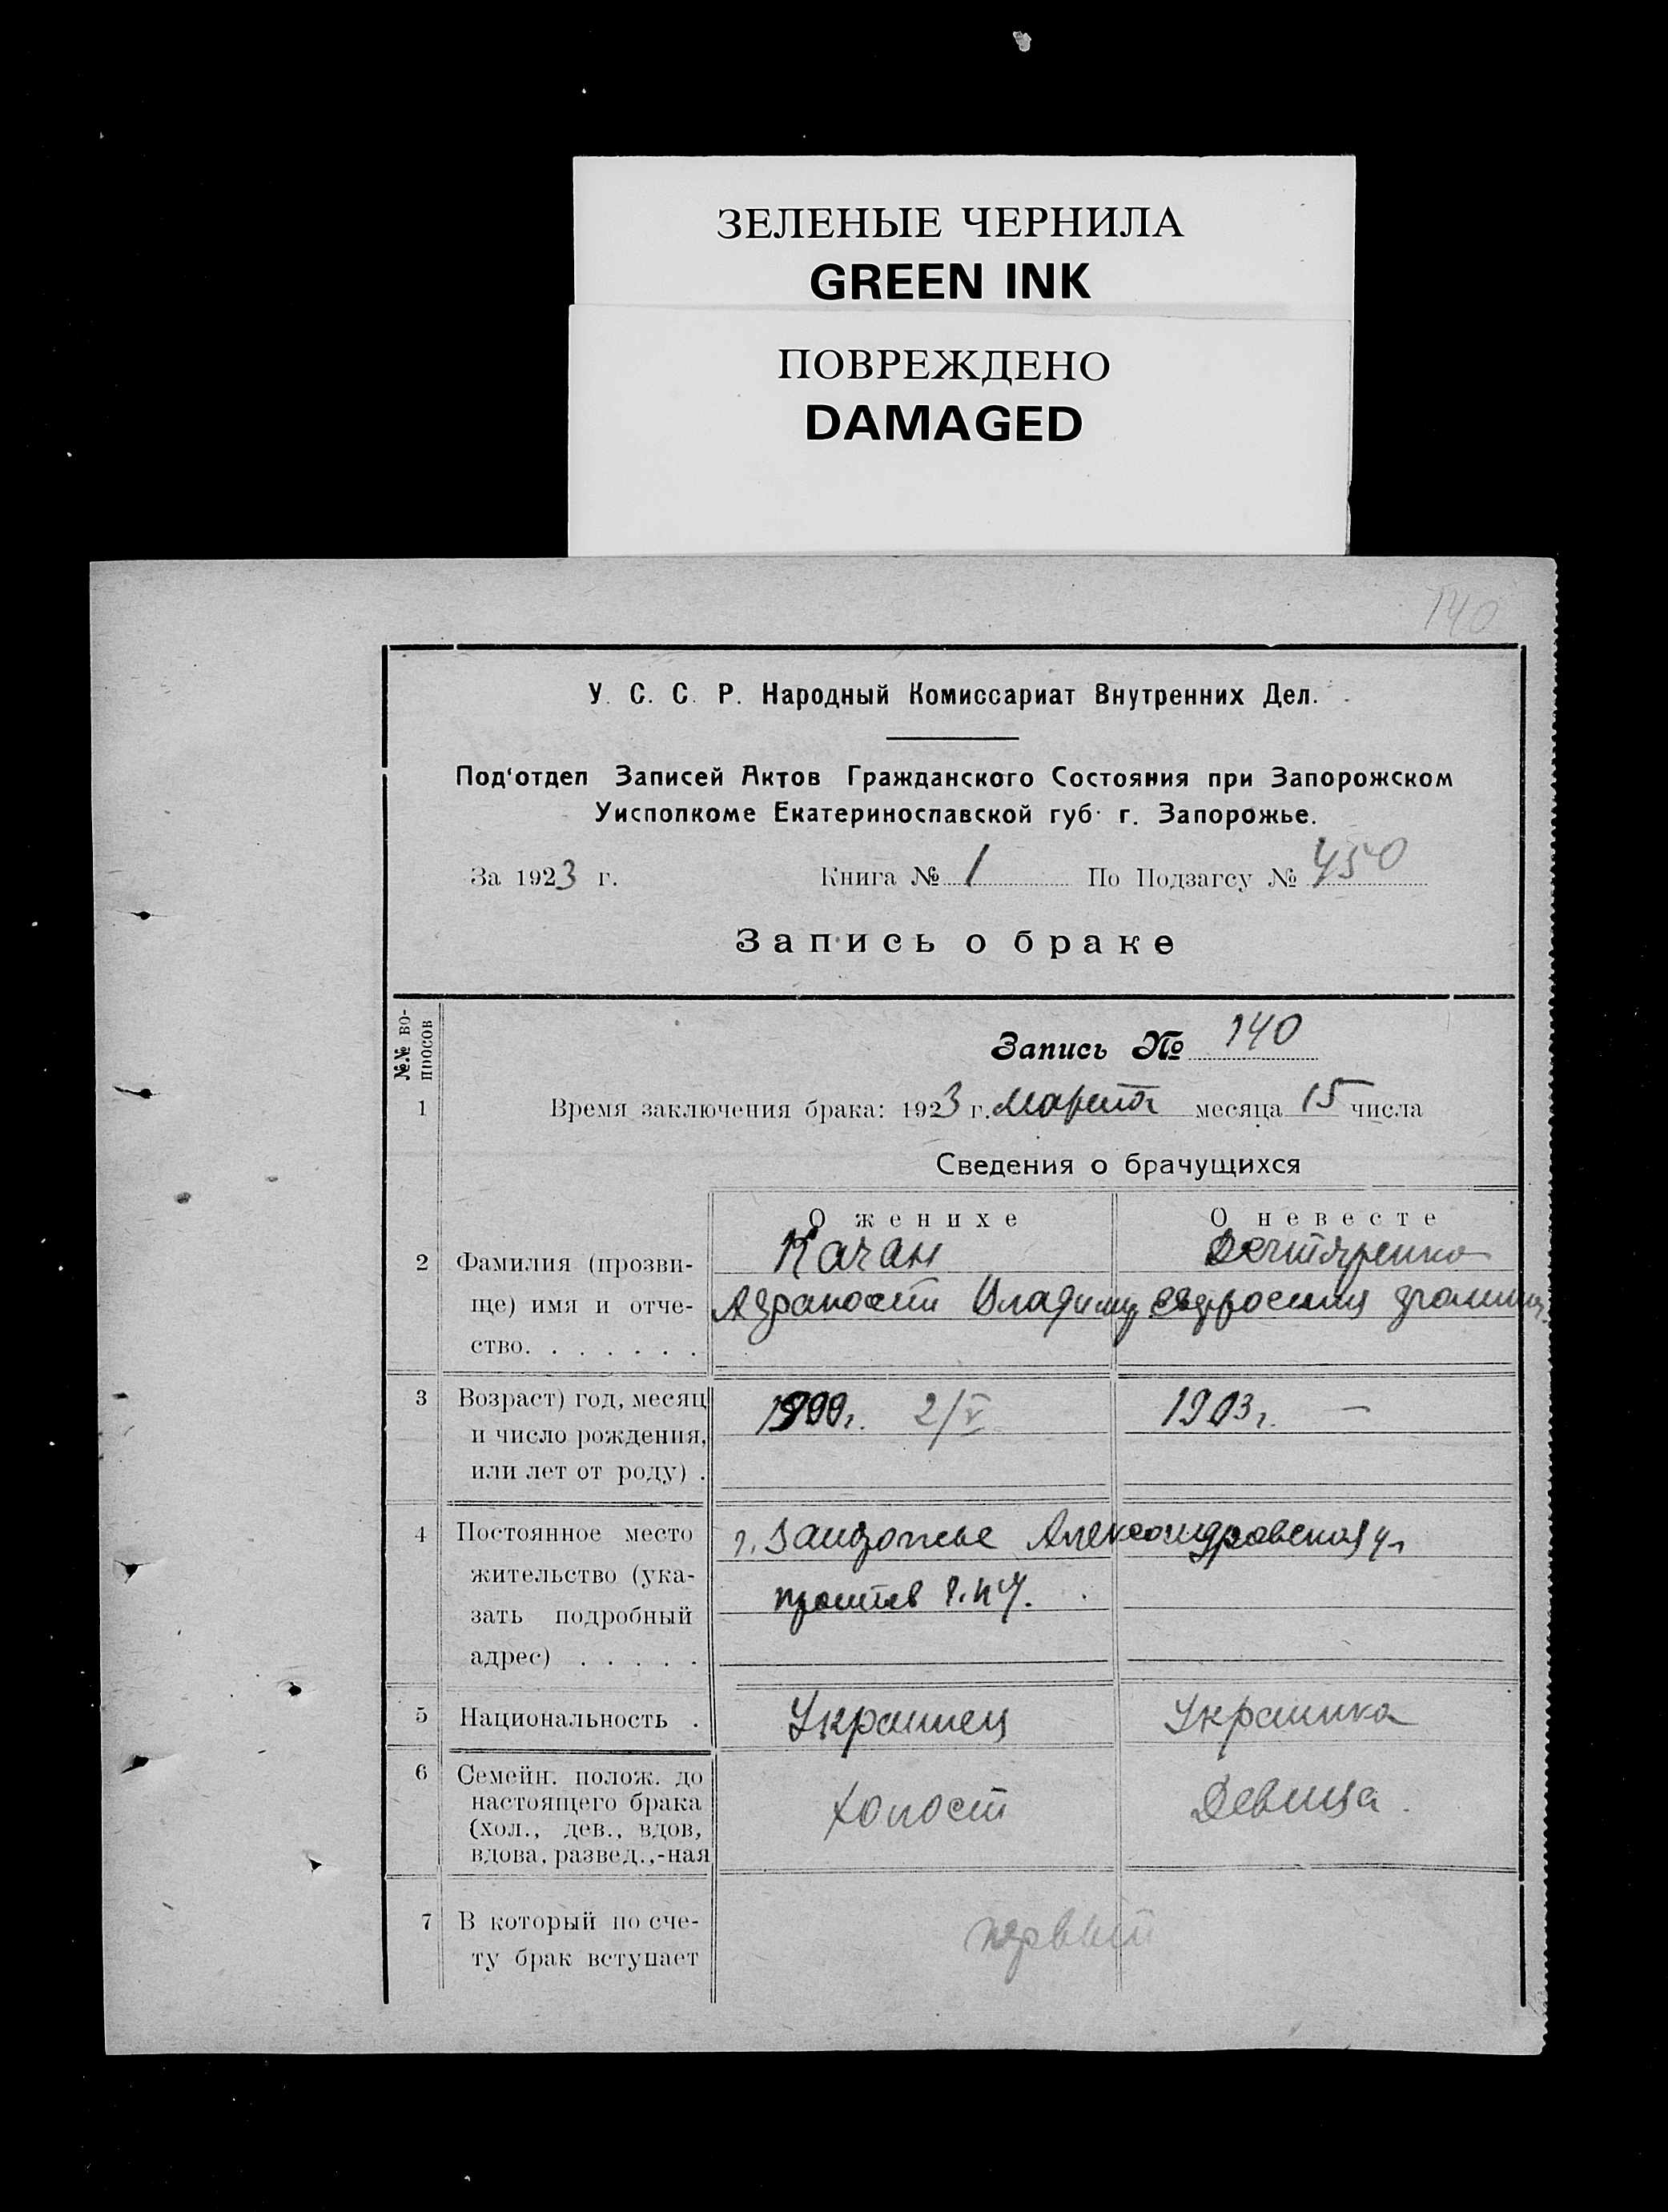 ЗЕЛЕНЫЕ ЧЕРНИЛА
GREEN INK
ПОВРЕЖДЕНО
DAMAGED
140
У. С. С. Р. Народный Комиссариат Внутренних Дел.
Под'отдел Записей Актов Гражданского Состояния при Запорожском
Уисполкоме Екатеринославской губ. г. Запорожье.
За 1923 г. Книга № 1 По Подзагсу № 450
Запись о браке
№№ во-
просов
Запись № 140
1 Время заключения брака: 1923 г. Марта месяца 15 числа
Сведения о брачущихся
О женихе О невесте
2 Фамилия (прозви- Качан Дегтяренко
ще) имя и отче- Владимир
ство. . . . . . .
3 Возраст) год, месяц 2/V 1903 г. —
и число рождения,
или лет от роду) .
4 Постоянное место г. Запорожье Александровская ул
жительство (ука- против
зать подробный
адрес) . . . . .
5 Национальность . Украинец Украинка
6 Семейн. полож. до
настоящего брака Холост Девица.
(хол., дев., вдов,
вдова, развед.,-ная
7 В который по сче- первый
ту брак вступает